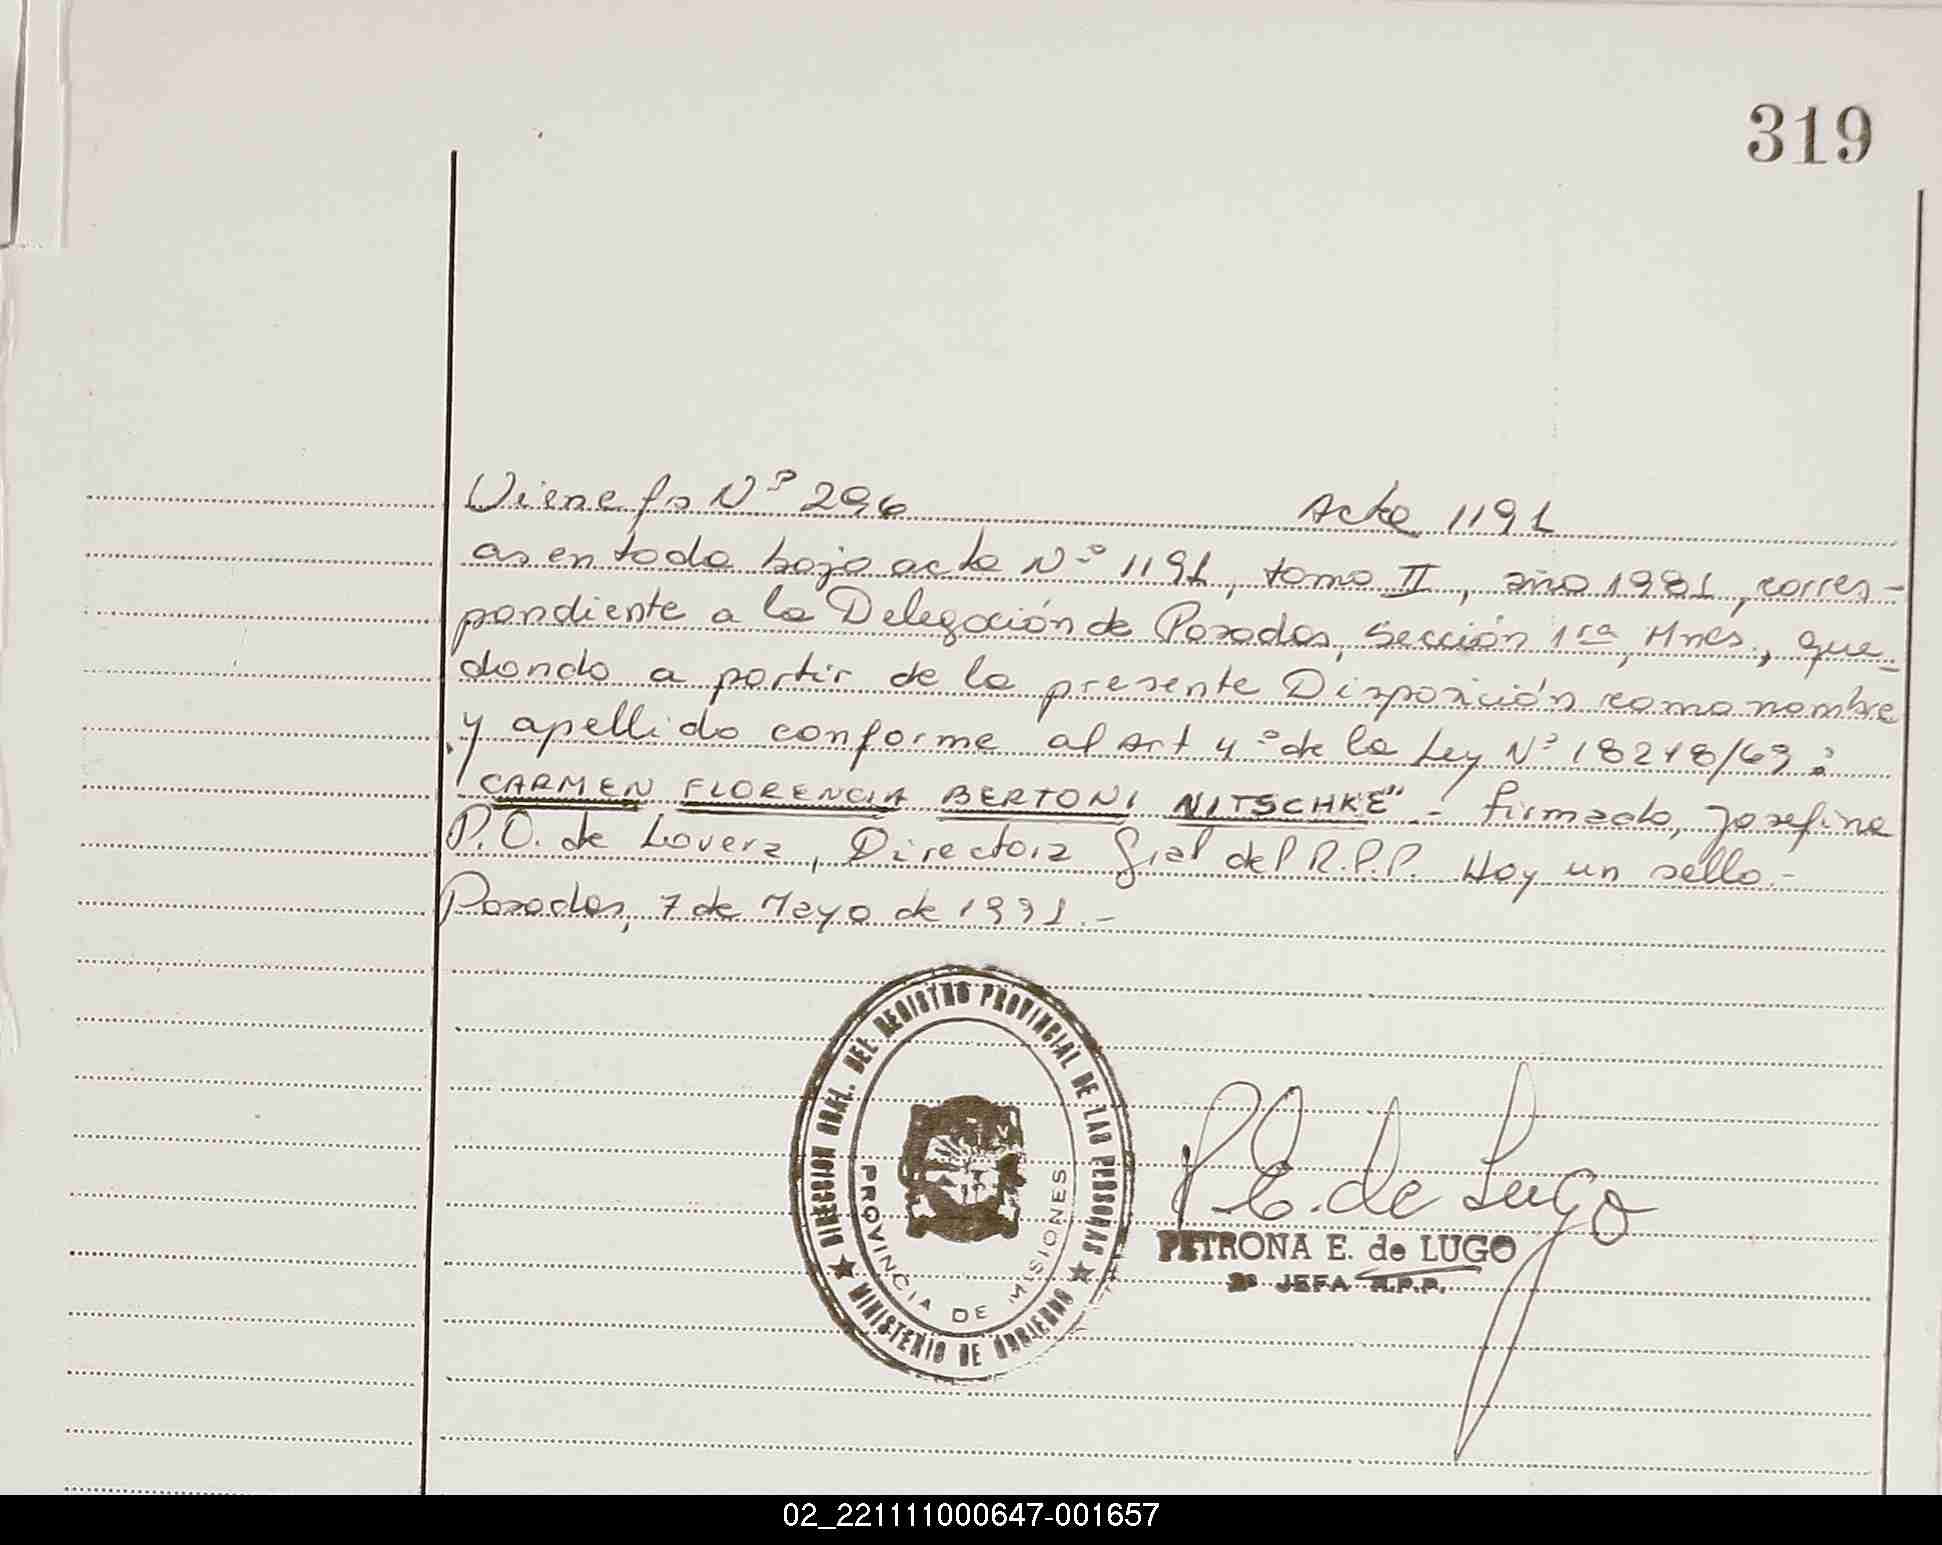 319
Viene fs Nº 296 Acta 1191
asentada bajo acta Nº 1191, tomo II, año 1981, corres-
pondiente a la Delegación de Posadas, Sección 1ra, Mnes., que-
dando a partir de la presente Disposición como nombre
y apellido conforme al Art 4º de la Ley Nº 18248/69:
"CARMEN FLORENCIA BERTONI NITSCHKE".- firmado, Josefina
P.O. de Lovera, Directora Gral del R.P.P. Hay un sello.-
Posadas, 7 de Mayo de 1991.-
DIRECCION GRAL. DEL REGISTRO PROVINCIAL DE LAS PERSONAS
PROVINCIA DE MISIONES
MINISTERIO DE GOBIERNO
P E. de Lugo
PETRONA E. de LUGO
2º JEFA R.P.P.
02_221111000647-001657